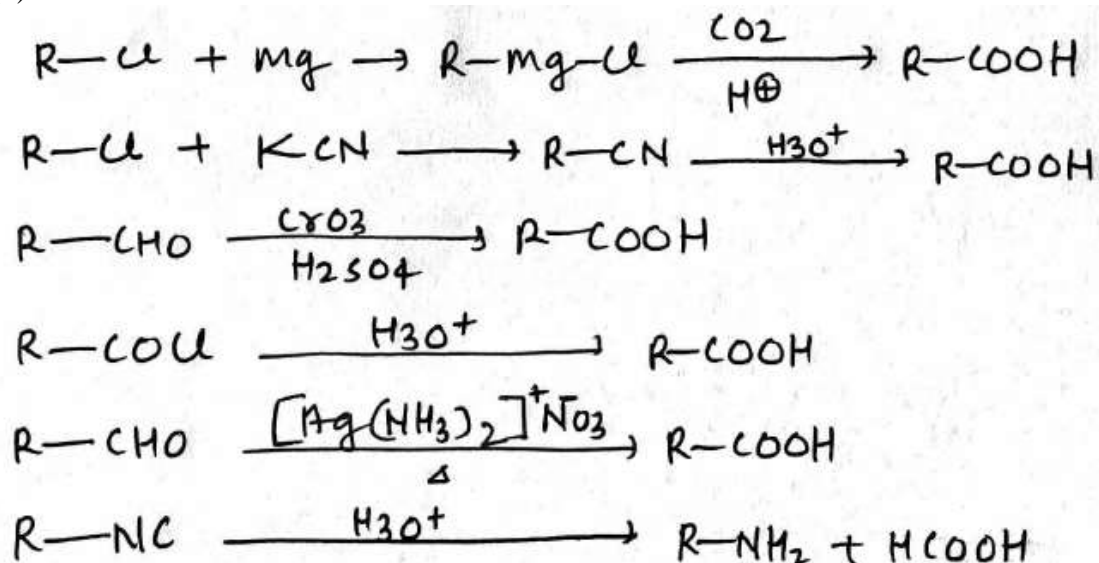 R—Cl + mg → R—mg—Cl —CO2/H⊕→ R—COOH
R—Cl + KCN → R—CN —H3O+→ R—COOH
R—CHO —CrO3/H2SO4→ R—COOH
R—COCl —H3O+→ R—COOH
R—CHO —[Ag(NH3)2]+NO3-/Δ→ R—COOH
R—NC —H3O+→ R—NH2 + HCOOH